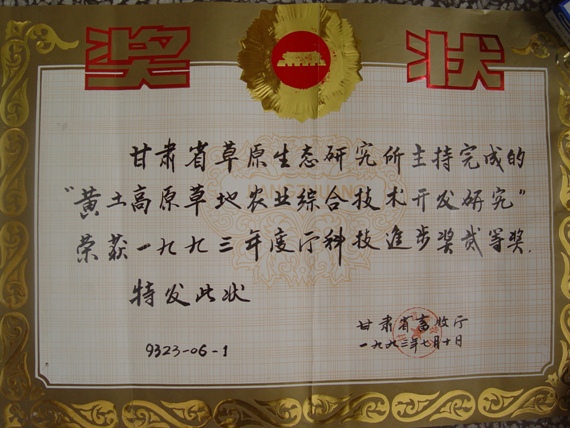 奖状
甘肃省草原生态研究所主持完成的
“黄土高原草地农业综合技术开发研究”
荣获一九九三年度厅科技進步奖贰等奖.
特发此状
甘肃省畜牧厅
一九九三年七月十日
9323-06-1